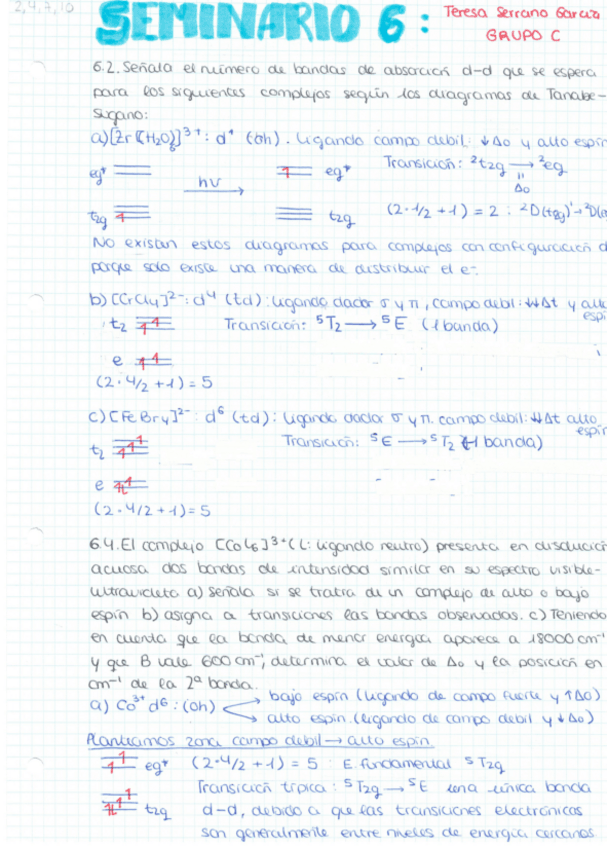 2,4,7,10
SEMINARIO 6:
Teresa Serrano García
GRUPO C
6.2. Señala el número de bandas de absorción d-d que se espera
para los siguientes complejos según los diagramas de Tanabe-
Sugano:
a) [Zr(H2O)6]3+: d1 (Oh). Ligando campo débil: ↓Δo y alto espín
eg* hν eg* Transición: ²t2g → ²eg
Δo
t2g t2g (2·1/2+1) = 2 : ²D(t2g)¹→²D(e
No existen estos diagramas para complejos con configuración d
porque solo existe una manera de distribuir el e-.
b) [CrCl4]2-: d4 (td): ligando dador σ y π, campo débil: ↓↓Δt y alto
espín
t2 Transición: ⁵T2 → ⁵E (1 banda)
e
(2·4/2+1) = 5
c) [FeBr4]2-: d6 (td): ligando dador σ y π. campo débil: ↓↓Δt alto
espín
t2 Transición: ⁵E → ⁵T2 (1 banda)
e
(2·4/2+1) = 5
6.4. El complejo [CoL6]3+ (L: ligando neutro) presenta en disolución
acuosa dos bandas de intensidad similar en su espectro visible-
ultravioleta a) señala si se tratra de un complejo de alto o bajo
espín b) asigna a transiciones las bandas observadas. c) Teniendo
en cuenta que la banda de menor energía aparece a 18000 cm-1
y que B vale 600 cm-1, determina el valor de Δo y la posición en
cm-1 de la 2ª banda.
a) Co3+ d6: (Oh) bajo espín (ligando de campo fuerte y ↑Δo)
alto espín. (ligando de campo débil y ↓Δo)
Planteamos zona campo débil → alto espín
eg* (2·4/2+1) = 5 E. fundamental ⁵T2g
Transición típica: ⁵T2g → ⁵E una única banda
t2g d-d, debido a que las transiciones electrónicas
son generalmente entre niveles de energía cercanos